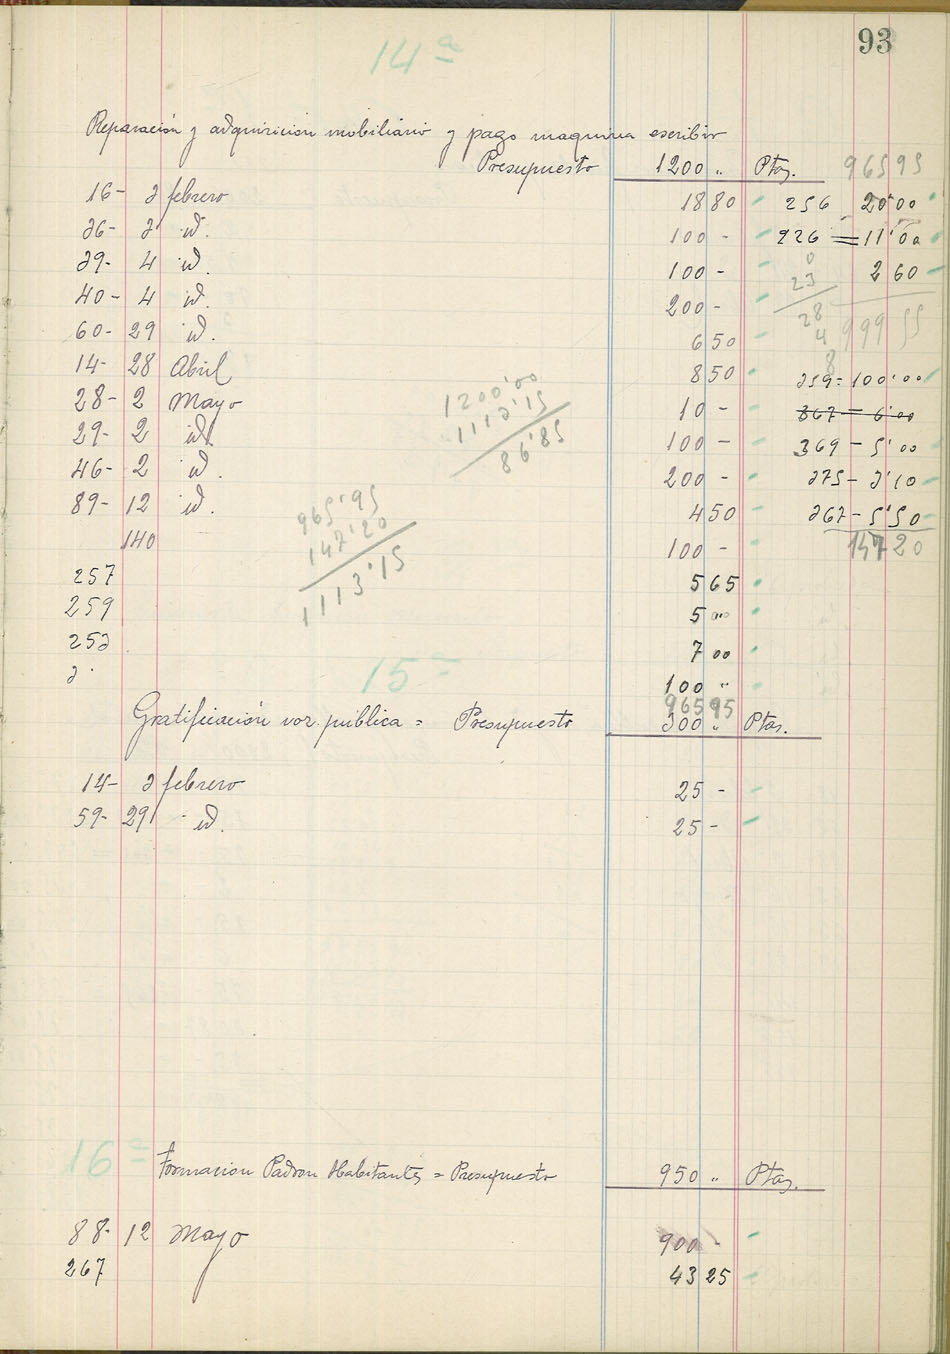 93
14ª
Reparación y adquisición mobiliario y pago maquina escribir
Presupuesto 1200 " Ptas. 965 95
16- 3 febrero 18 80 256 20'00
26- 3 id. 100 - 226 = 11'00
39- 4 id. 100 - 2 60
40- 4 id. 200 - 999 55
60- 29 id. 6 50
14- 28 Abril 8 50 359 = 100'00
28- 2 Mayo 10 - 367 = 6'00
29- 2 id. 100 - 369 - 5'00
46- 2 id. 200 - 375 - 3'10
89- 12 id. 4 50 367 - 5'50
140 100 - 147 20
257 5 65
259 5 00
253 7 00
100 "
965 95
1200'00
1113'15
86'85
965'95
147'20
1113'15
15ª
Gratificación voz pública = Presupuesto 300 " Ptas.
14- 3 febrero 25 -
59- 29 id. 25 -
16ª Formación Padron Habitantes = Presupuesto 950 " Ptas.
88- 12 Mayo 900 -
267 43 25